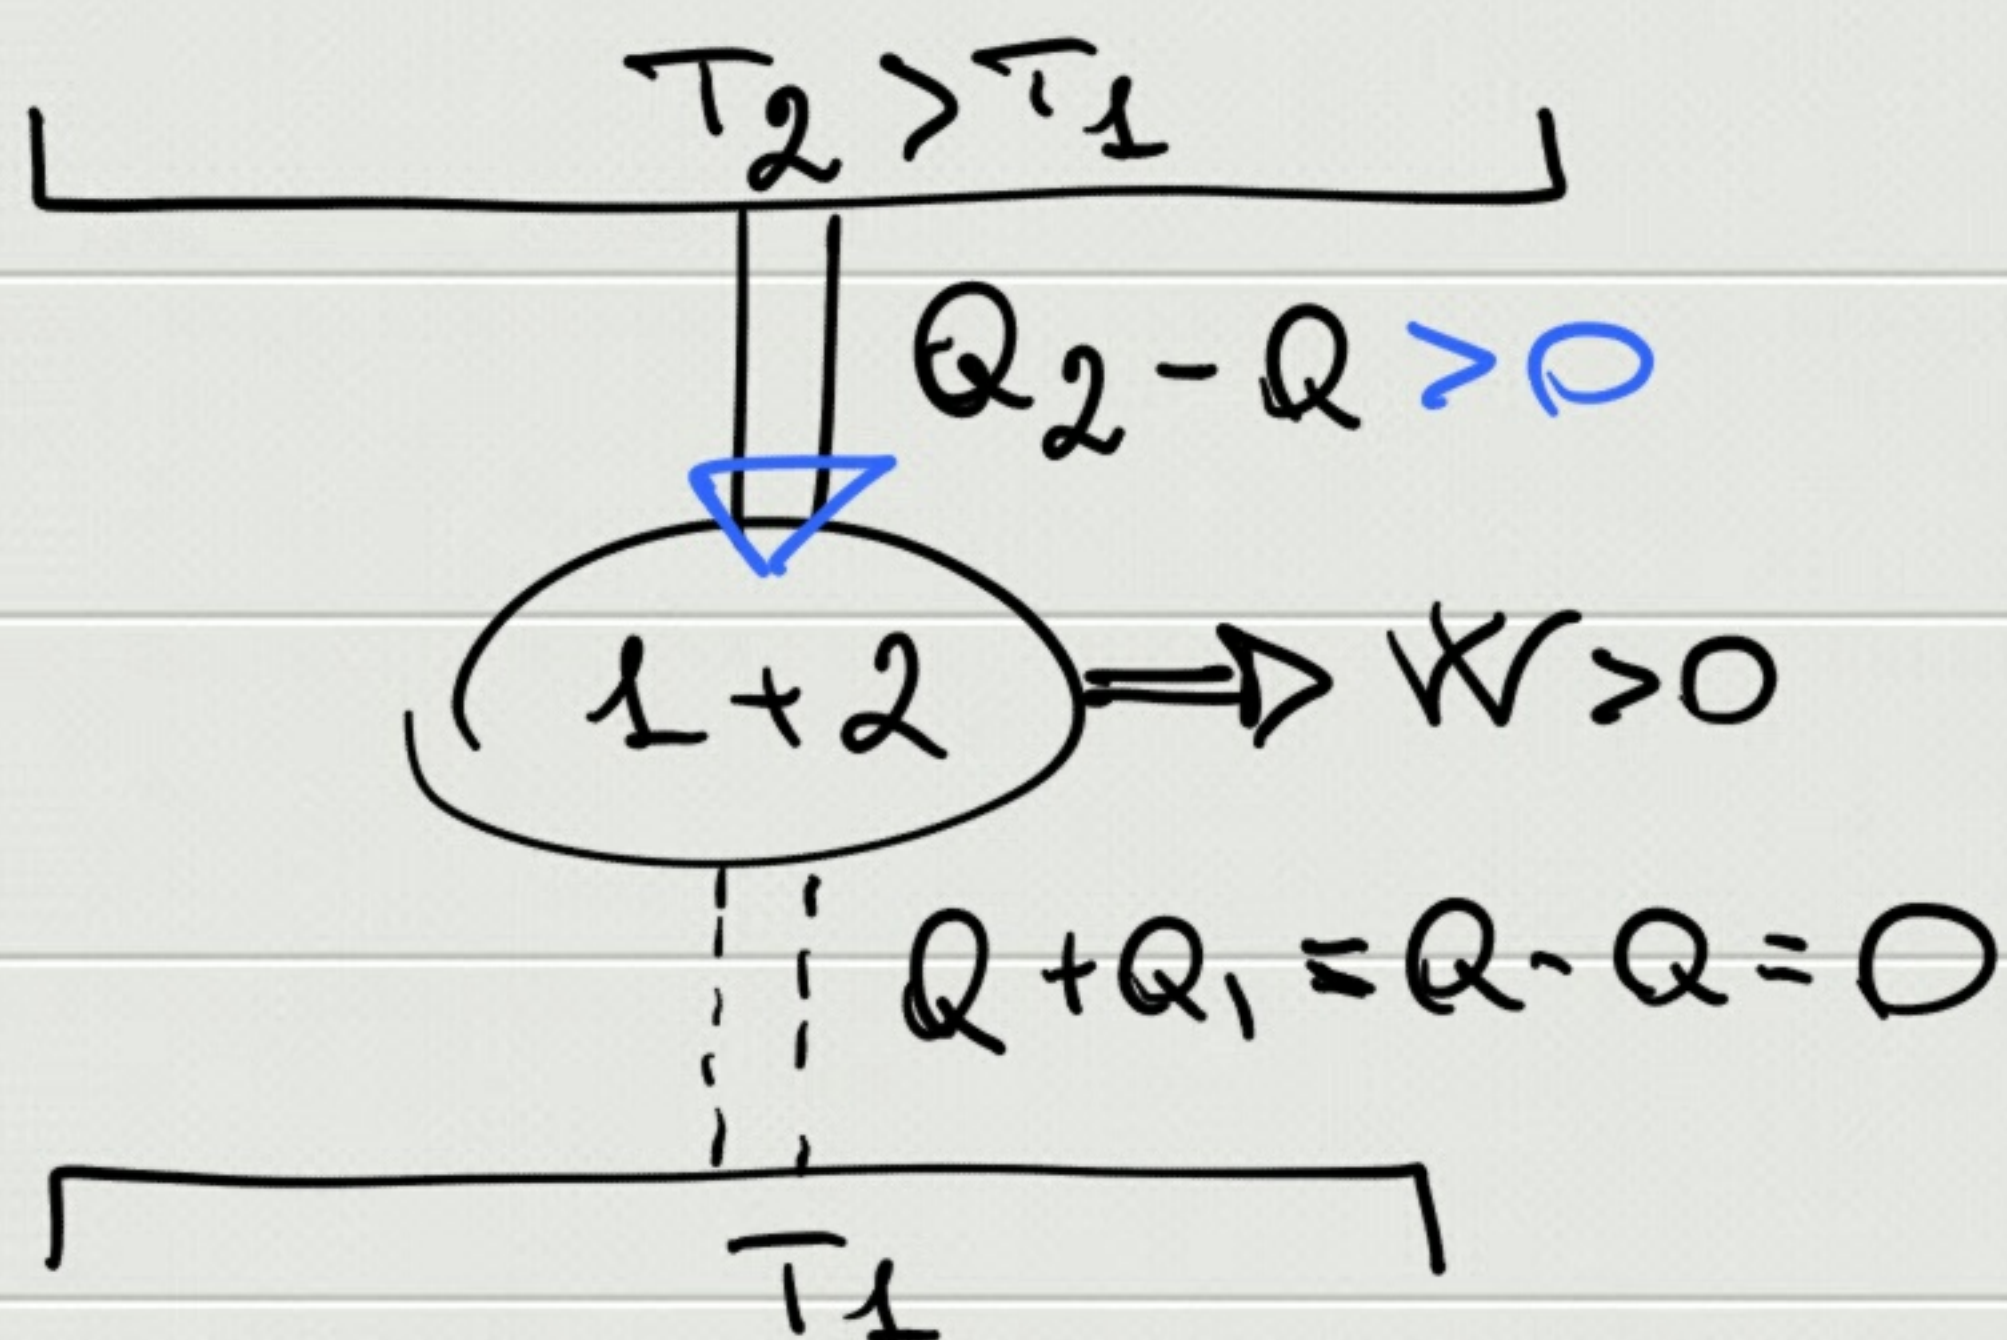 T2 > T1
Q2 - Q > 0
1 + 2
W > 0
Q + Q1 = Q - Q = 0
T1